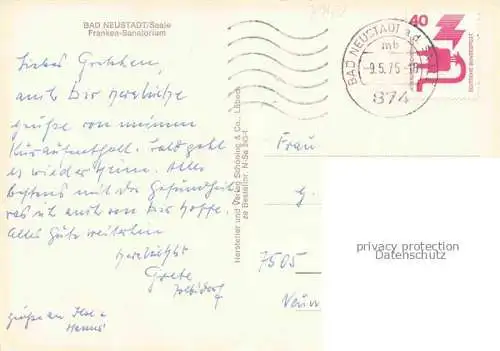 BAD NEUSTADT/Saale
Franken-Sanatorium
Liebes Gretchen,
auch Dir herzliche
Grüße von meinem
Kuraufenthalt. Bald geht
es wieder heim. Alles
bestens mit der Gesundheit
was ich auch von Dir hoffe.
Alles Gute weiterhin
herzlichst
Grete
Grüße an Ilse u
Hersteller und Verlag Schöning & Co., Lübeck
zu Bestellnr. N Sa
BAD NEUSTADT a.d.
mb
-9.5.75-
874
40
DEUTSCHE BUNDESPOST
Frau
G.
7505
privacy protection
Datenschutz